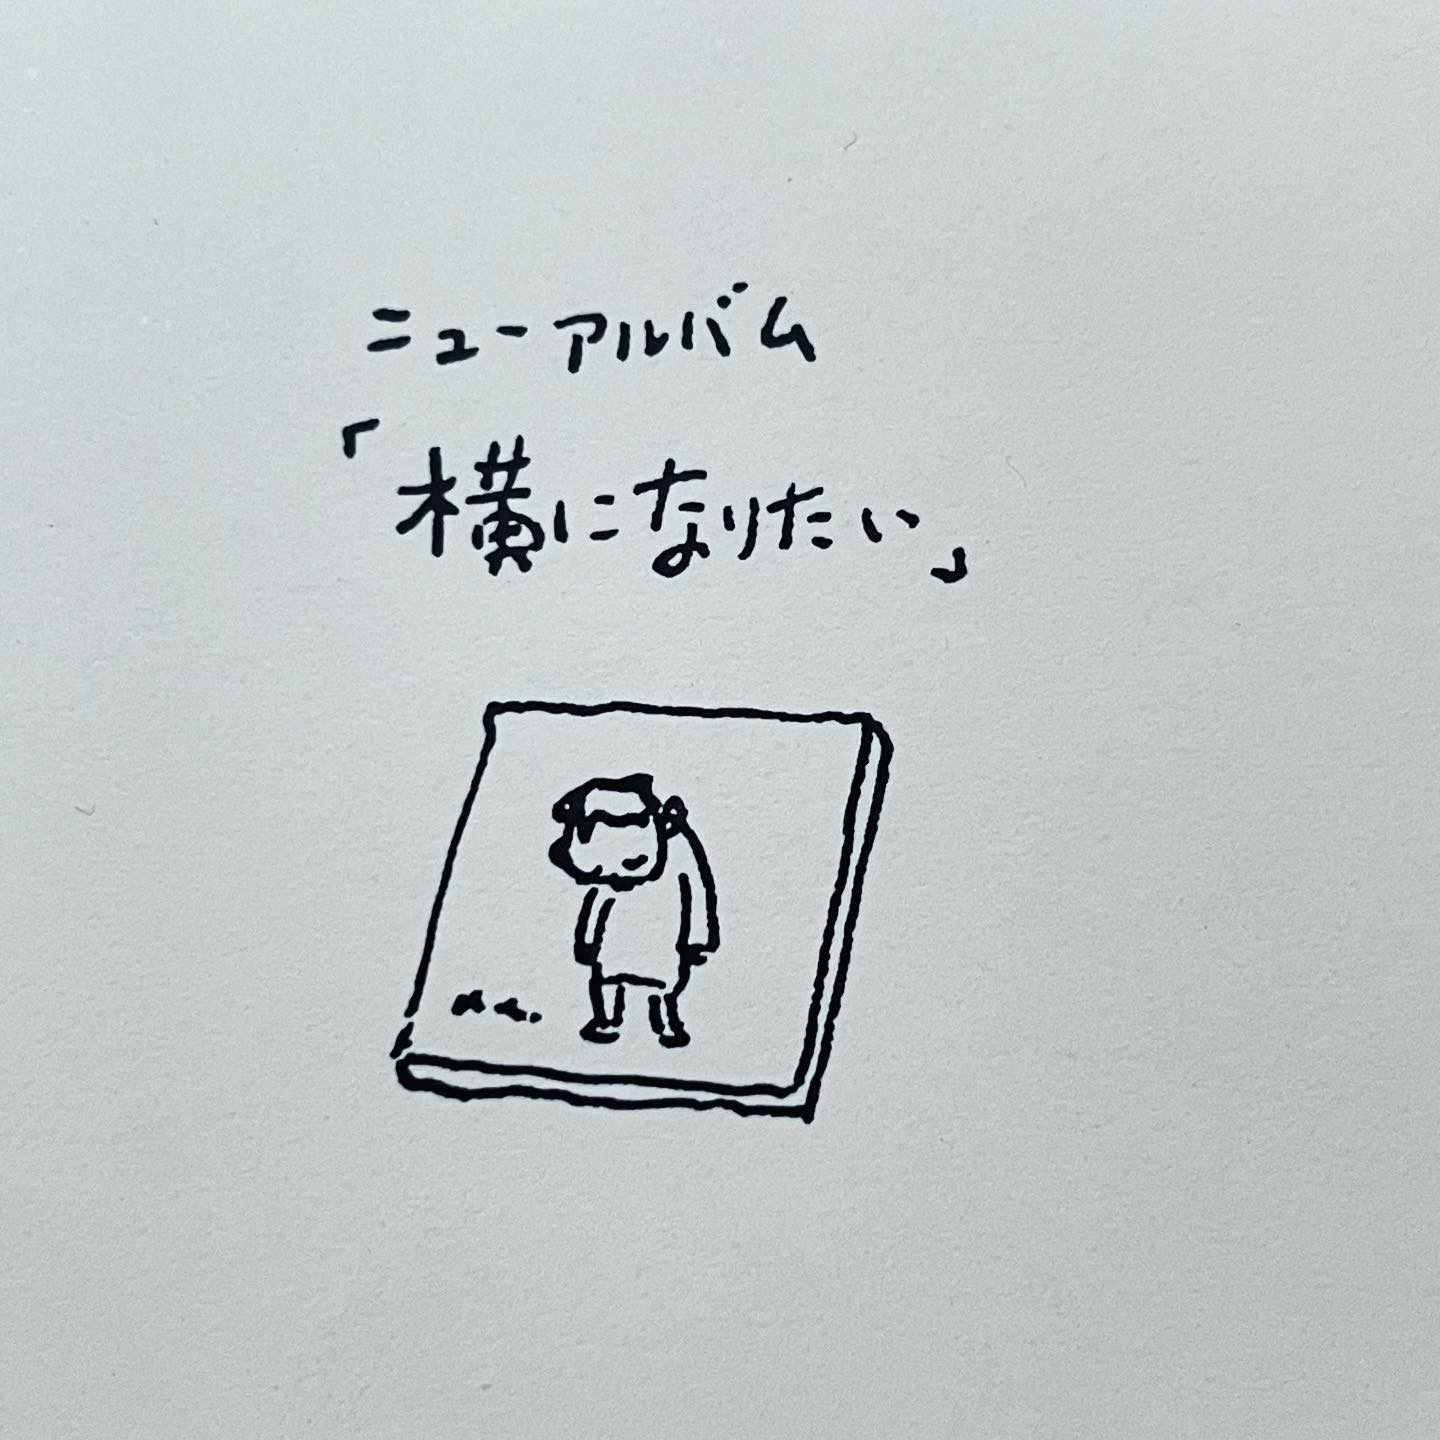 ニューアルバム
「横になりたい」